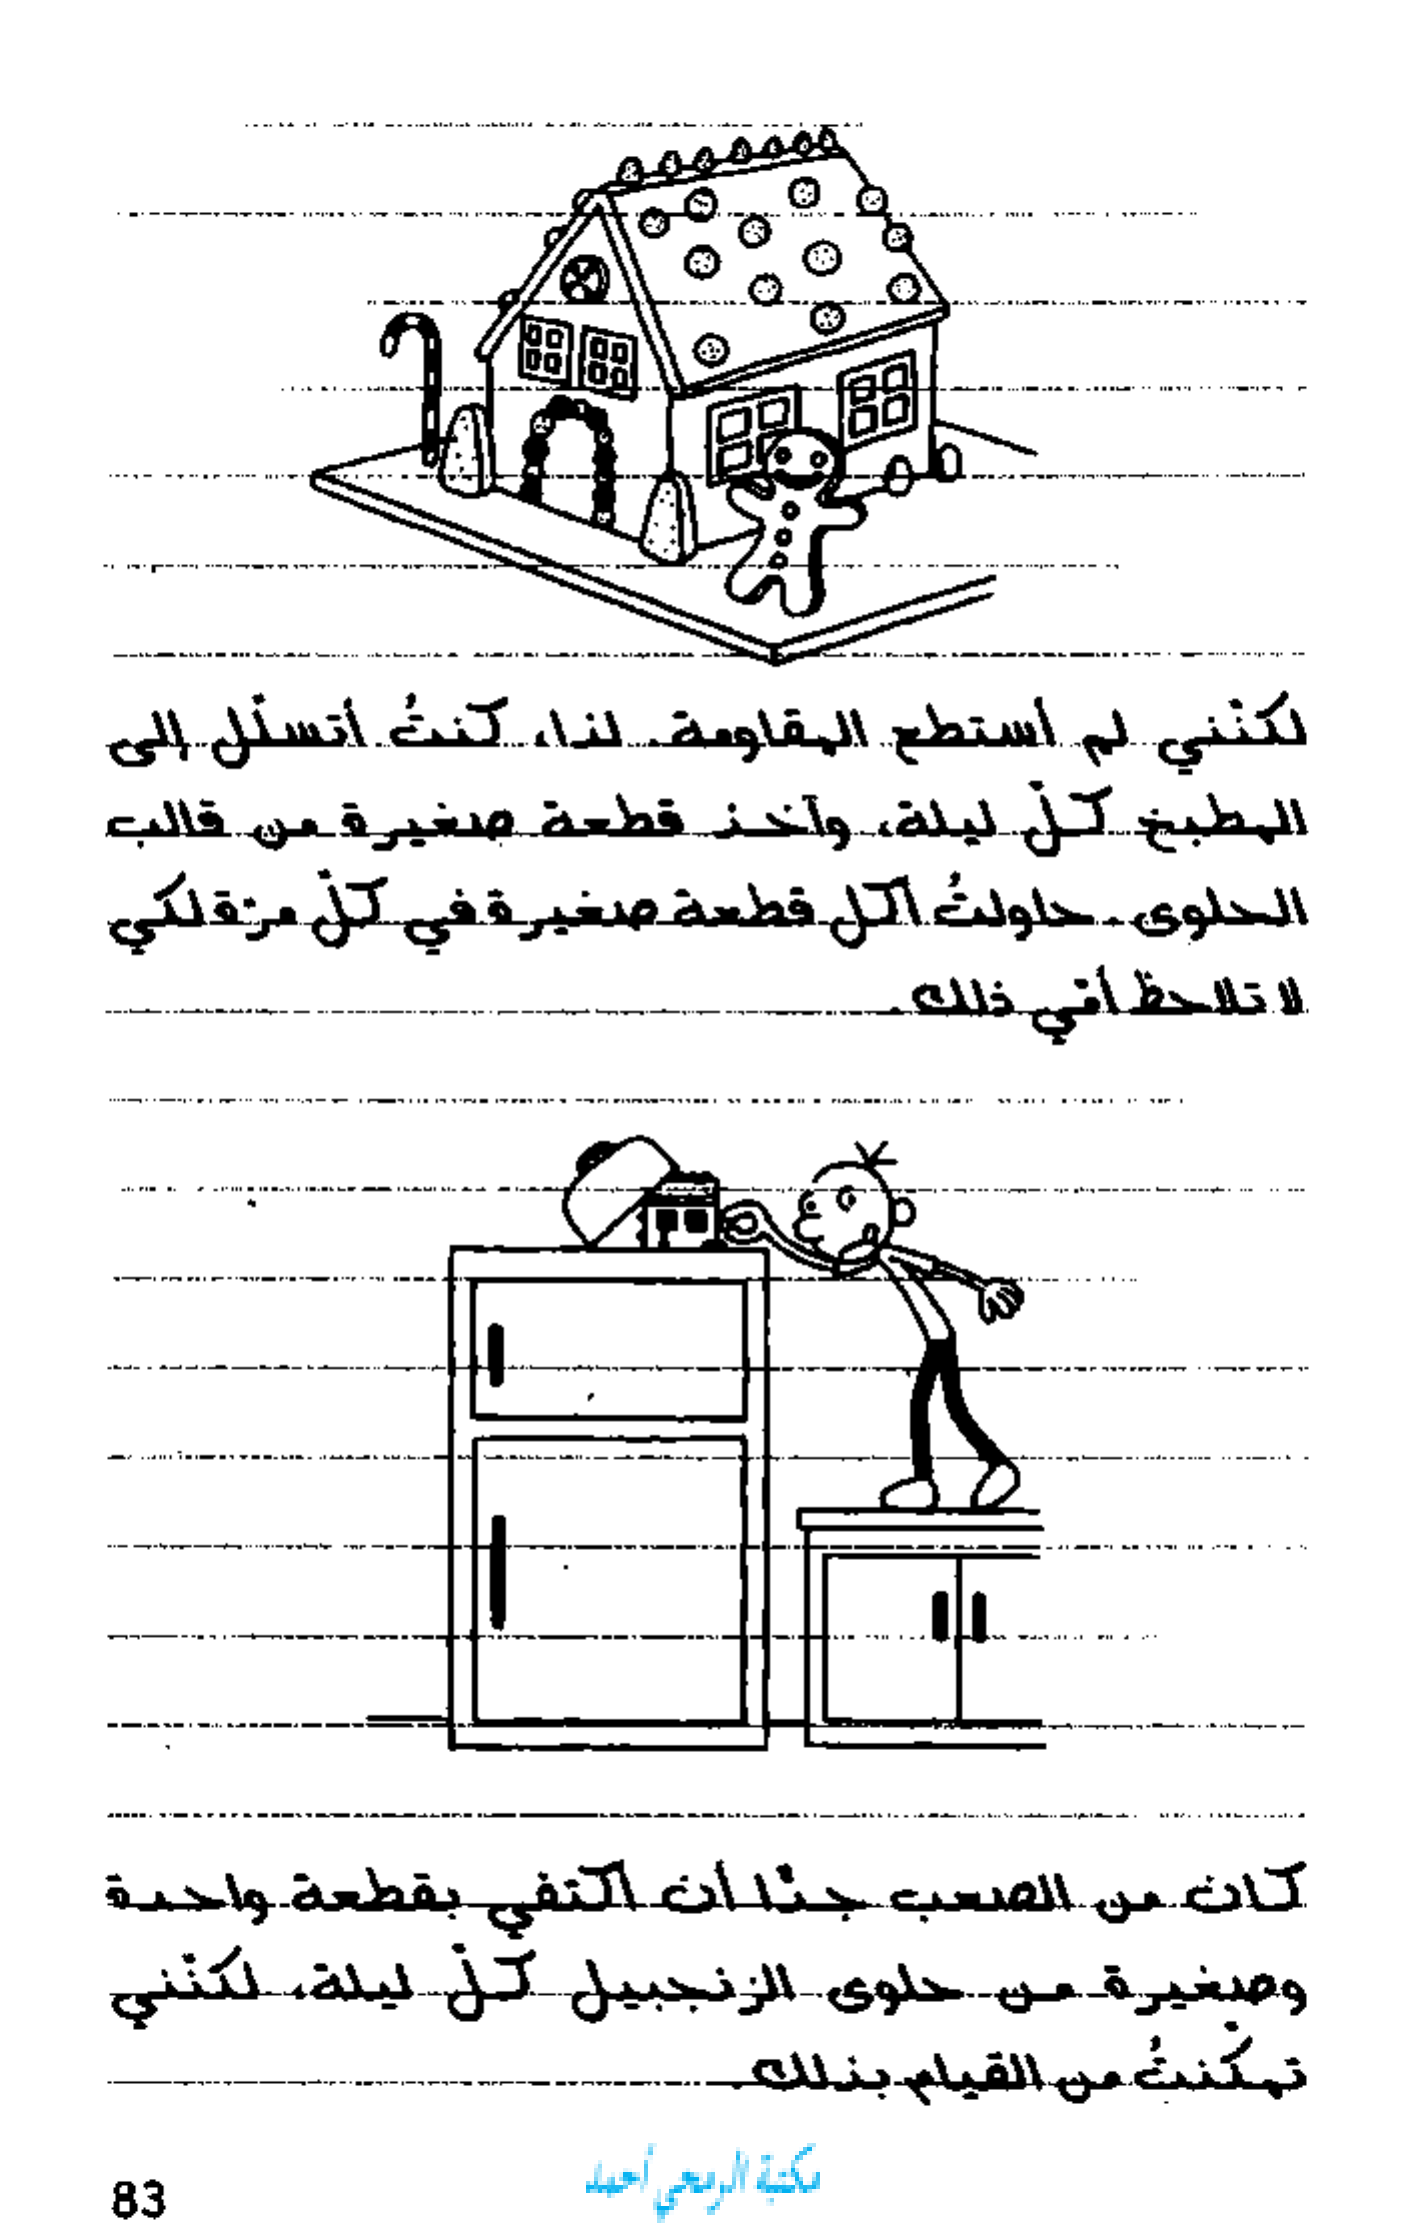 لكنّني لم أستطع المقاومة. لذا، كنتُ أتسلّل إلى
المطبخ كلّ ليلة، وآخذ قطعة صغيرة من قالب
الحلوى. حاولتُ أكل قطعة صغيرة في كلّ مرّة لكي
لا تلاحظ أمّي ذلك.
كان من الصعب جدًّا أن أكتفي بقطعة واحدة
وصغيرة من حلوى الزنجبيل كلّ ليلة، لكنّني
تمكّنتُ من القيام بذلك.
مكتبة الرمحي أحمد
83